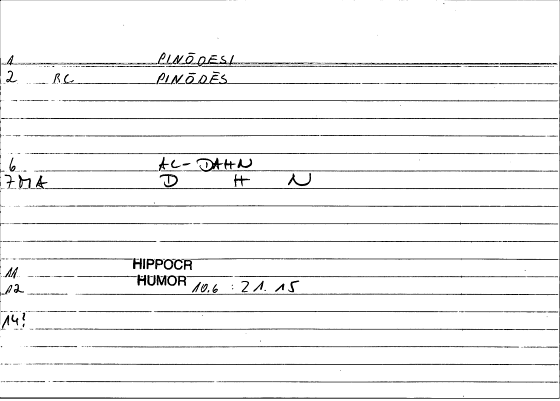 1 PINŌDESI
2 RC PINŌDĒS
6 AC-DAHN
7 MA D H N
11 HIPPOCR
12 HUMOR 10.6 : 21. 15
14!